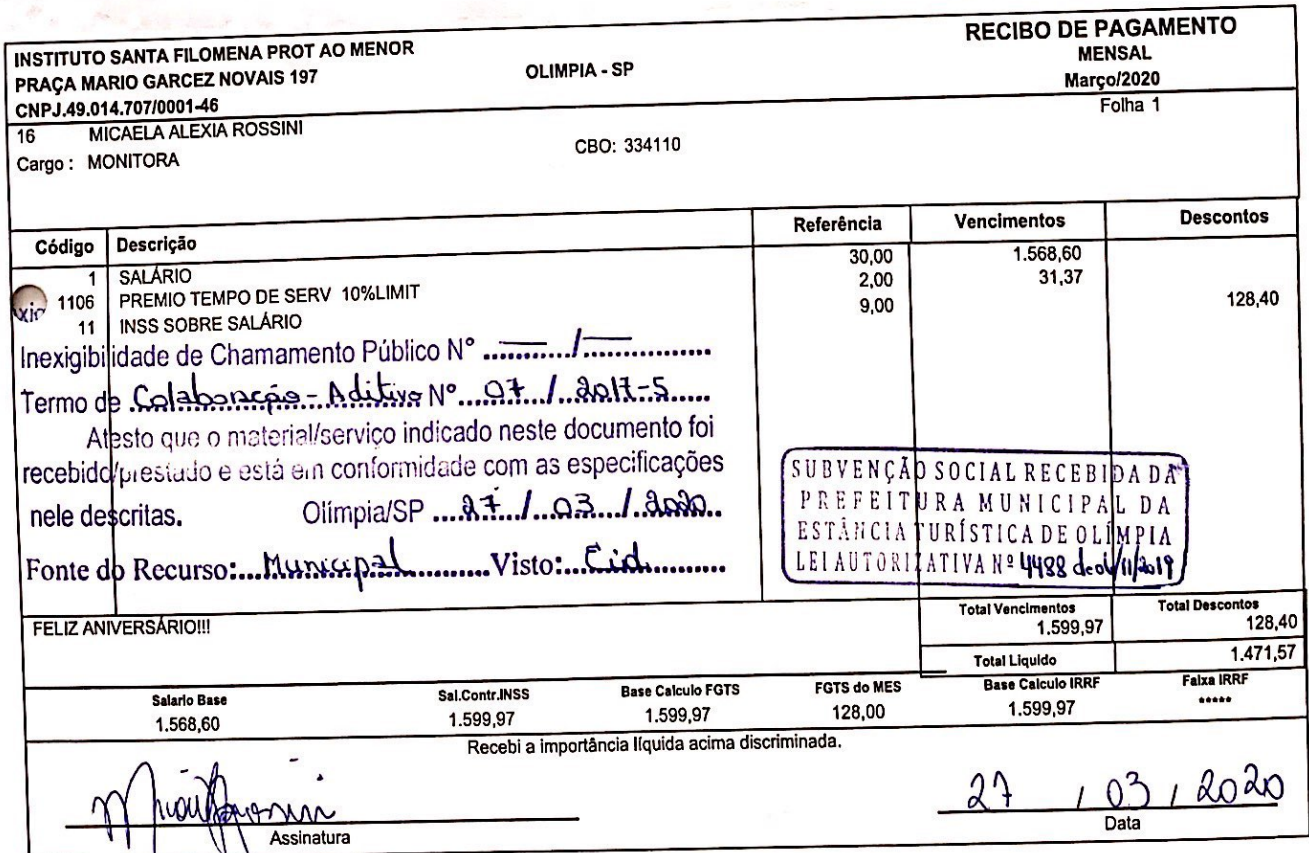 INSTITUTO SANTA FILOMENA PROT AO MENOR
PRAÇA MARIO GARCEZ NOVAIS 197
OLIMPIA - SP
CNPJ.49.014.707/0001-46
RECIBO DE PAGAMENTO
MENSAL
Março/2020
Folha 1
16 MICAELA ALEXIA ROSSINI
Cargo : MONITORA
CBO: 334110
Código Descrição Referência Vencimentos Descontos
1 SALÁRIO 30,00 1.568,60
1106 PREMIO TEMPO DE SERV 10%LIMIT 2,00 31,37
11 INSS SOBRE SALÁRIO 9,00 128,40
Inexigibilidade de Chamamento Público Nº ............/..................
Termo de Colaboração - Aditivo Nº 07 / 2017-5
Atesto que o material/serviço indicado neste documento foi
recebido/prestado e está em conformidade com as especificações
nele descritas. Olímpia/SP 27 / 03 / 2020
Fonte do Recurso: Municipal Visto: Cid
SUBVENÇÃO SOCIAL RECEBIDA DA
PREFEITURA MUNICIPAL DA
ESTÂNCIA TURÍSTICA DE OLÍMPIA
LEI AUTORIZATIVA Nº 4488 de 01/11/2019
FELIZ ANIVERSÁRIO!!!
Total Vencimentos Total Descontos
1.599,97 128,40
Total Liquido 1.471,57
Salario Base Sal.Contr.INSS Base Calculo FGTS FGTS do MES Base Calculo IRRF Faixa IRRF
1.568,60 1.599,97 1.599,97 128,00 1.599,97 *****
Recebi a importância líquida acima discriminada.
27 / 03 / 2020
Assinatura
Data